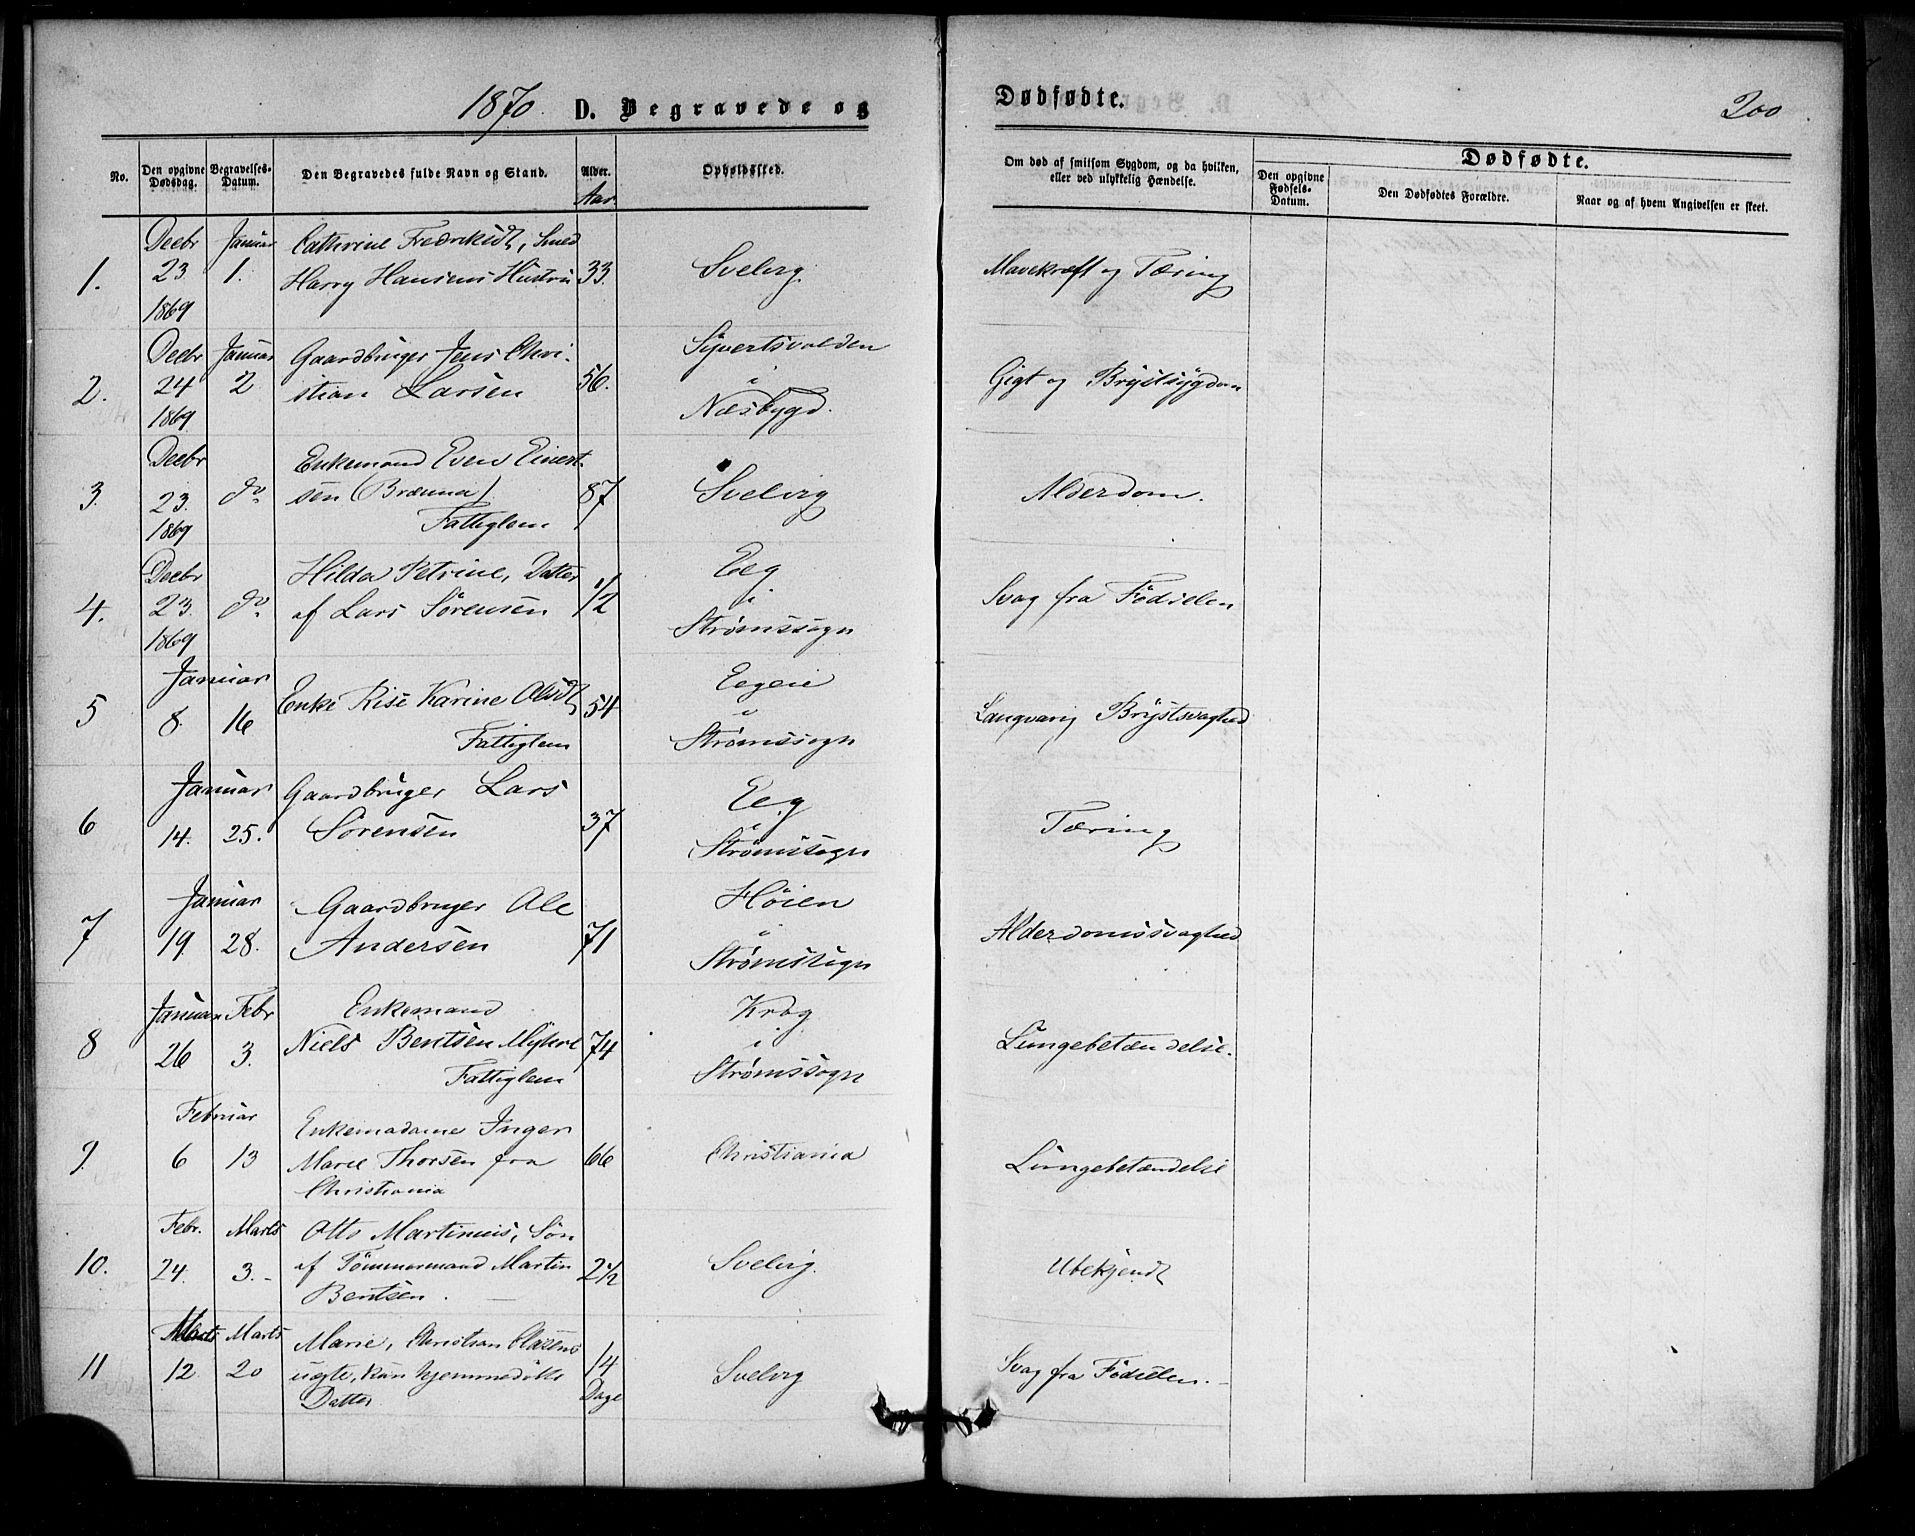 1870. D. Begravede og
Dødfødte.
200
No.
Den opgivne Dødsdag.
Begravelses-Datum.
Den Begravedes fulde Navn og Stand.
Alder.
Aar.
Opholdssted.
Om død af smitsom Sygdom, og da hvilken,
eller ved ulykkelig Hændelse.
Dødfødte.
Den opgivne Fødsels-Datum.
Den Dødfødtes Forældre.
Naar og af hvem Angivelsen er skeet.
Decbr Januar Cathrine Fredriksdt, Smed
1. 23 1. Harry Hansens Hustru 33. Svelvig. Mavekræft og Tæring
1869
Decbr Januar Gaardbruger Jens Chri- Syvertsvolden
2. 24 2 stian Larsen 56. i Gigt og Brystsygdom
1869 Næsbygd.
Decbr Enkemand Even Einert-
3. 23. do sen (Brænna) 87 Svelvig Alderdom.
1869 Fattiglem
Decbr Hilda Petrine, Datter Eeg
4. 23. do af Lars Sörensen 1/2 i Svag fra Fødselen
1869 Strømssogn
Januar Eegeie
5 8. 16 Enke Rise Karine Olsdt 54 i Langvarig Brystsvaghed
Fattiglem Strømssogn
Januar Gaardbruger Lars Eeg
6 14. 25. Sörensen 37 i Tæring
Strømssogn
Januar Gaardbruger Ole Høien
7 19. 28. Andersen 71 i Alderdomssvaghed
Strømssogn
Januar Febr Enkemand Krog
8 26 3. Niels Bentsen 74 i Lungebetændelse.
Fattiglem Strømssogn
Februar Enkemadame Inger
9. 6 13 Marie Thorsen fra 66 Christiania Lungebetændelse
Christiania
Febr. Marts Otto Martinius, Søn
10. 24. 3. af Tömmermand Martin 2 1/2 Svelvig. Ubekjendt
Bentsen.
Marts Marts Marie, Christian Olasens
11 12. 20 uægte, kun hjemmedöbte 14 Svelvig Svag fra Fødselen.
Datter Dage